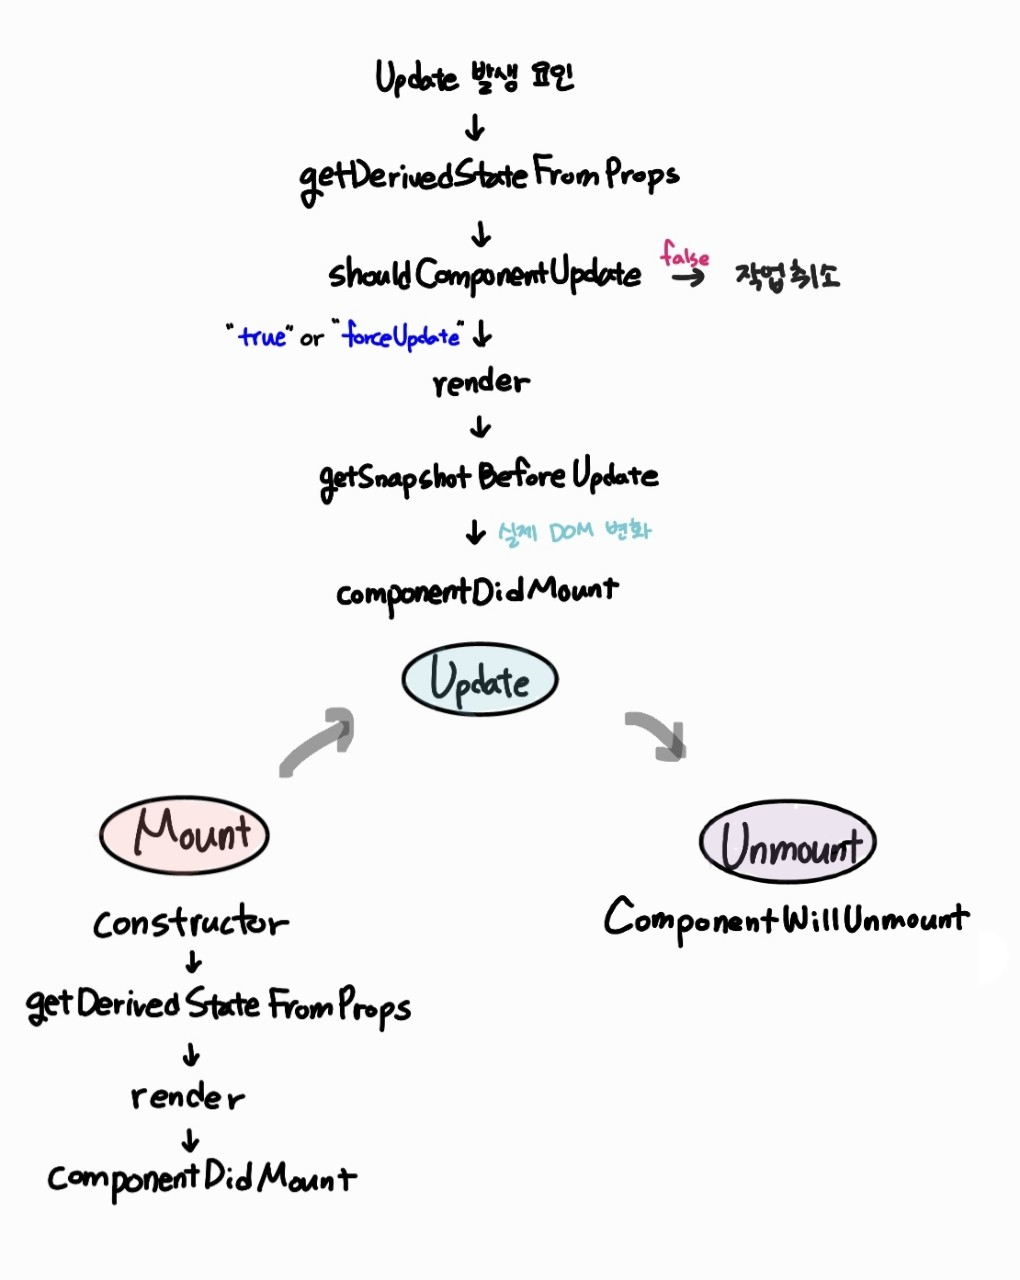 Update 발생 요인
↓
getDerivedStateFromProps
↓
false
shouldComponentUpdate → 작업취소
"true" or "forceUpdate" ↓
render
↓
getSnapshotBeforeUpdate
↓ 실제 DOM 변화
componentDidMount
Update
Mount
constructor
↓
getDerivedStateFromProps
↓
render
↓
componentDidMount
Unmount
ComponentWillUnmount